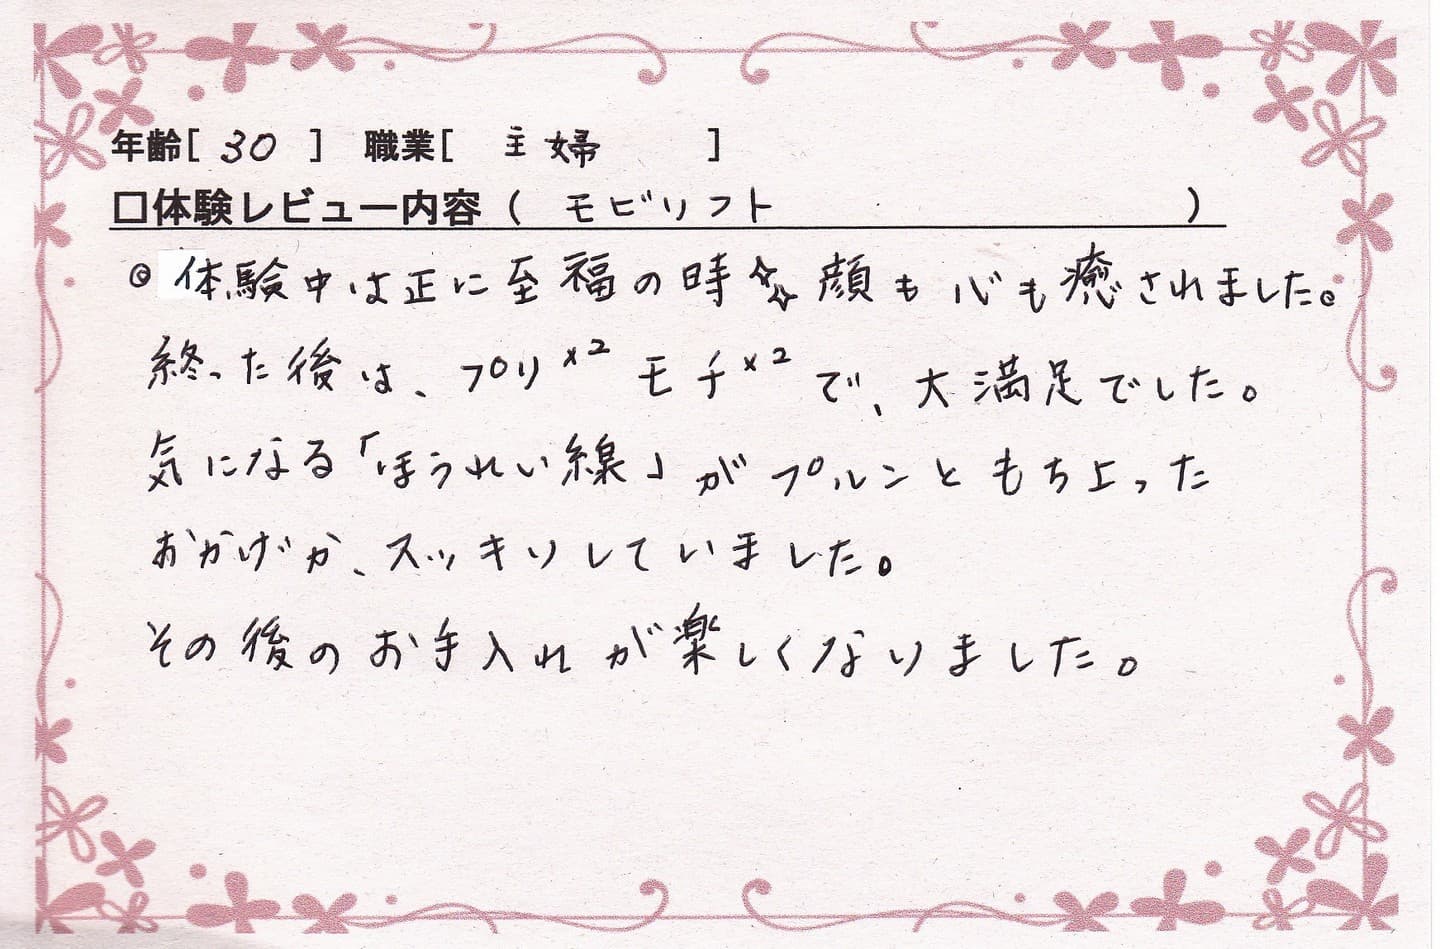 年齢[ 30 ] 職業[ 主婦 ]
□体験レビュー内容 ( モビリフト )
◎ 体験中は正に至福の時✨顔も心も癒されました。
終った後は、プリ×2 モチ×2 で、大満足でした。
気になる「ほうれい線」がプルンともち上った
おかげか、スッキリしていました。
その後のお手入れが楽しくなりました。